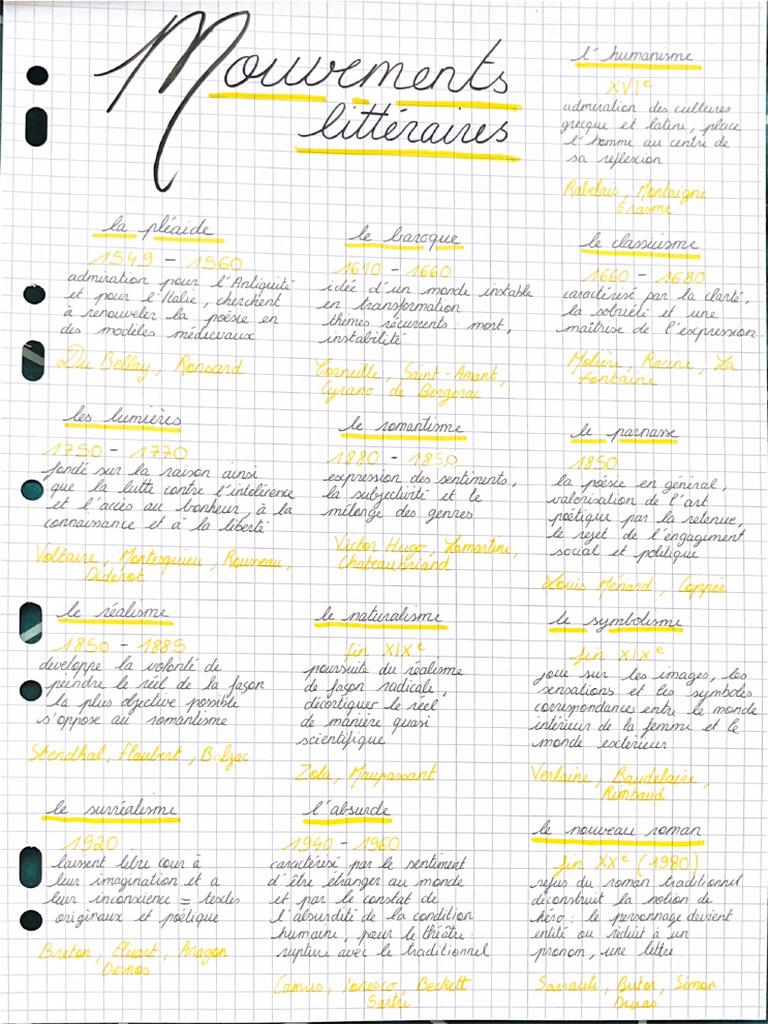 Mouvements
littéraires
l'humanisme
XVIe
admiration des cultures
grecque et latine, place
l'homme au centre de
sa reflexion
Rabelais, Montaigne
Erasme
la pléaide
1549 - 1560
admiration pour l'Antiquité
et pour l'Italie, cherchent
à renouveler la poésie en
des modèles médievaux
Du Bellay, Ronsard
le baroque
1610 - 1660
idée d'un monde instable
en transformation
thèmes récurrents: mort,
instabilité
Corneille, Saint-Amant,
Cyrano de Bergerac
le classisisme
1660 - 1680
caractérisé par la clarté,
la sobriété et une
maîtrise de l'expression
Molière, Racine, La
Fontaine
les lumières
1750 - 1770
fondé sur la raison ainsi
que la lutte contre l'intolérence
et l'accès au bonheur, à la
connaissance et à la liberté
Voltaire, Montesquieu, Rousseau,
Diderot
le romantisme
1880 - 1850
expression des sentiments,
la subjectivité et le
mélange des genres
Victor Hugo, Lamartine,
Chateaubriand
le parnasse
1850
la poésie en général,
valorisation de l'art
poétique par la retenue,
le rejet de l'engagment
social et politique
Louis Ménard, Coppée
le réalisme
1850 - 1885
developpe la volonté de
peindre le réel de la façon
la plus objective possible
s'oppose au romantisme
Stendhal, Flaubert, Balzac
le naturalisme
fin XIXe
poursuite du réalisme
de façon radicale,
décortiquer le réel
de manière quasi
scientifique
Zola, Maupassant
le symbolisme
fin XIXe
joue sur les images, les
sensations et les symboles
correspondances entre le monde
intérieur de la femme et le
monde extérieur
Verlaine, Baudelaire,
Rimbaud
le surréalisme
1920
laissent libre cour à
leur imagination et a
leur inconscience = textes
originaux et poétique
Breton, Eluart, Aragon
Desnos
l'absurde
1940 - 1960
caractérisé par le sentiment
d'être étranger au monde
et par le constat de
l'absurdité de la condition
humaine, pour le théâtre:
rupture avec le traditionnel
Camus, Ionesco, Beckett
Sartre
le nouveau roman
fin XXe (1980)
refus du roman traditionnel
déconstruit la notion de
héro: le personnage devient
entité ou réduit à un
pronom, une lettre
Sarraute, Butor, Simon
Duras